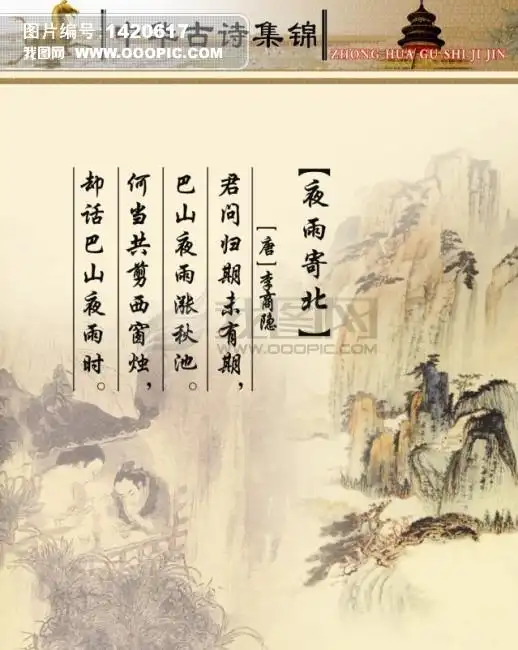 图片编号:1420617
我图网 www.ooopic.com
古诗集锦
ZHONG HUA GU SHI JI JIN
【夜雨寄北】
[唐]李商隐
君问归期未有期，
巴山夜雨涨秋池。
何当共剪西窗烛，
却话巴山夜雨时。
我图网
www.ooopic.com